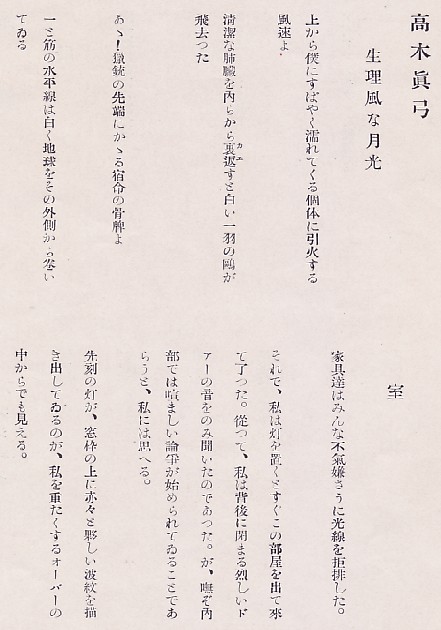 高木眞弓
生理風な月光
上から僕にすばやく濡れてくる個体に引火する
風速よ
清潔な肺臓を内らから裏返すと白い一羽の鷗が
カエ
飛去つた
あゝ！獵銃の先端にかゝる宿命の骨牌よ
一と筋の水平線は白く地球をその外側から巻い
てゐる
室
家具達はみんな不氣嫌さうに光線を拒排した。
それで、私は灯を置くとすぐこの部屋を出て來
て了つた。從つて、私は背後に閉まる烈しいド
アーの音をのみ聞いたのであつた。が、嘸ぞ內
部では喧ましい論爭が始められてゐることであ
らうと、私には思へる。
先刻の灯が、窓枠の上に赤々と夥しい波紋を描
き出してゐるのが、私を重たくするオーバーの
中からでも見える。